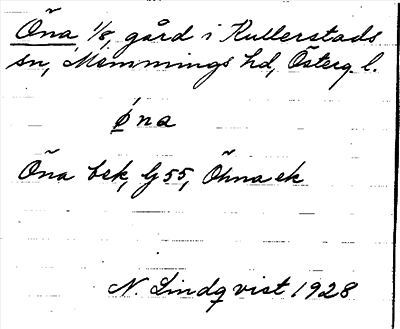 Öna, 1/8, gård i Kullerstads
sn, Memmings hd, Österg. l.
ǿna
Öna bek, G 55, Öhna ek
N. Lindqvist 1928